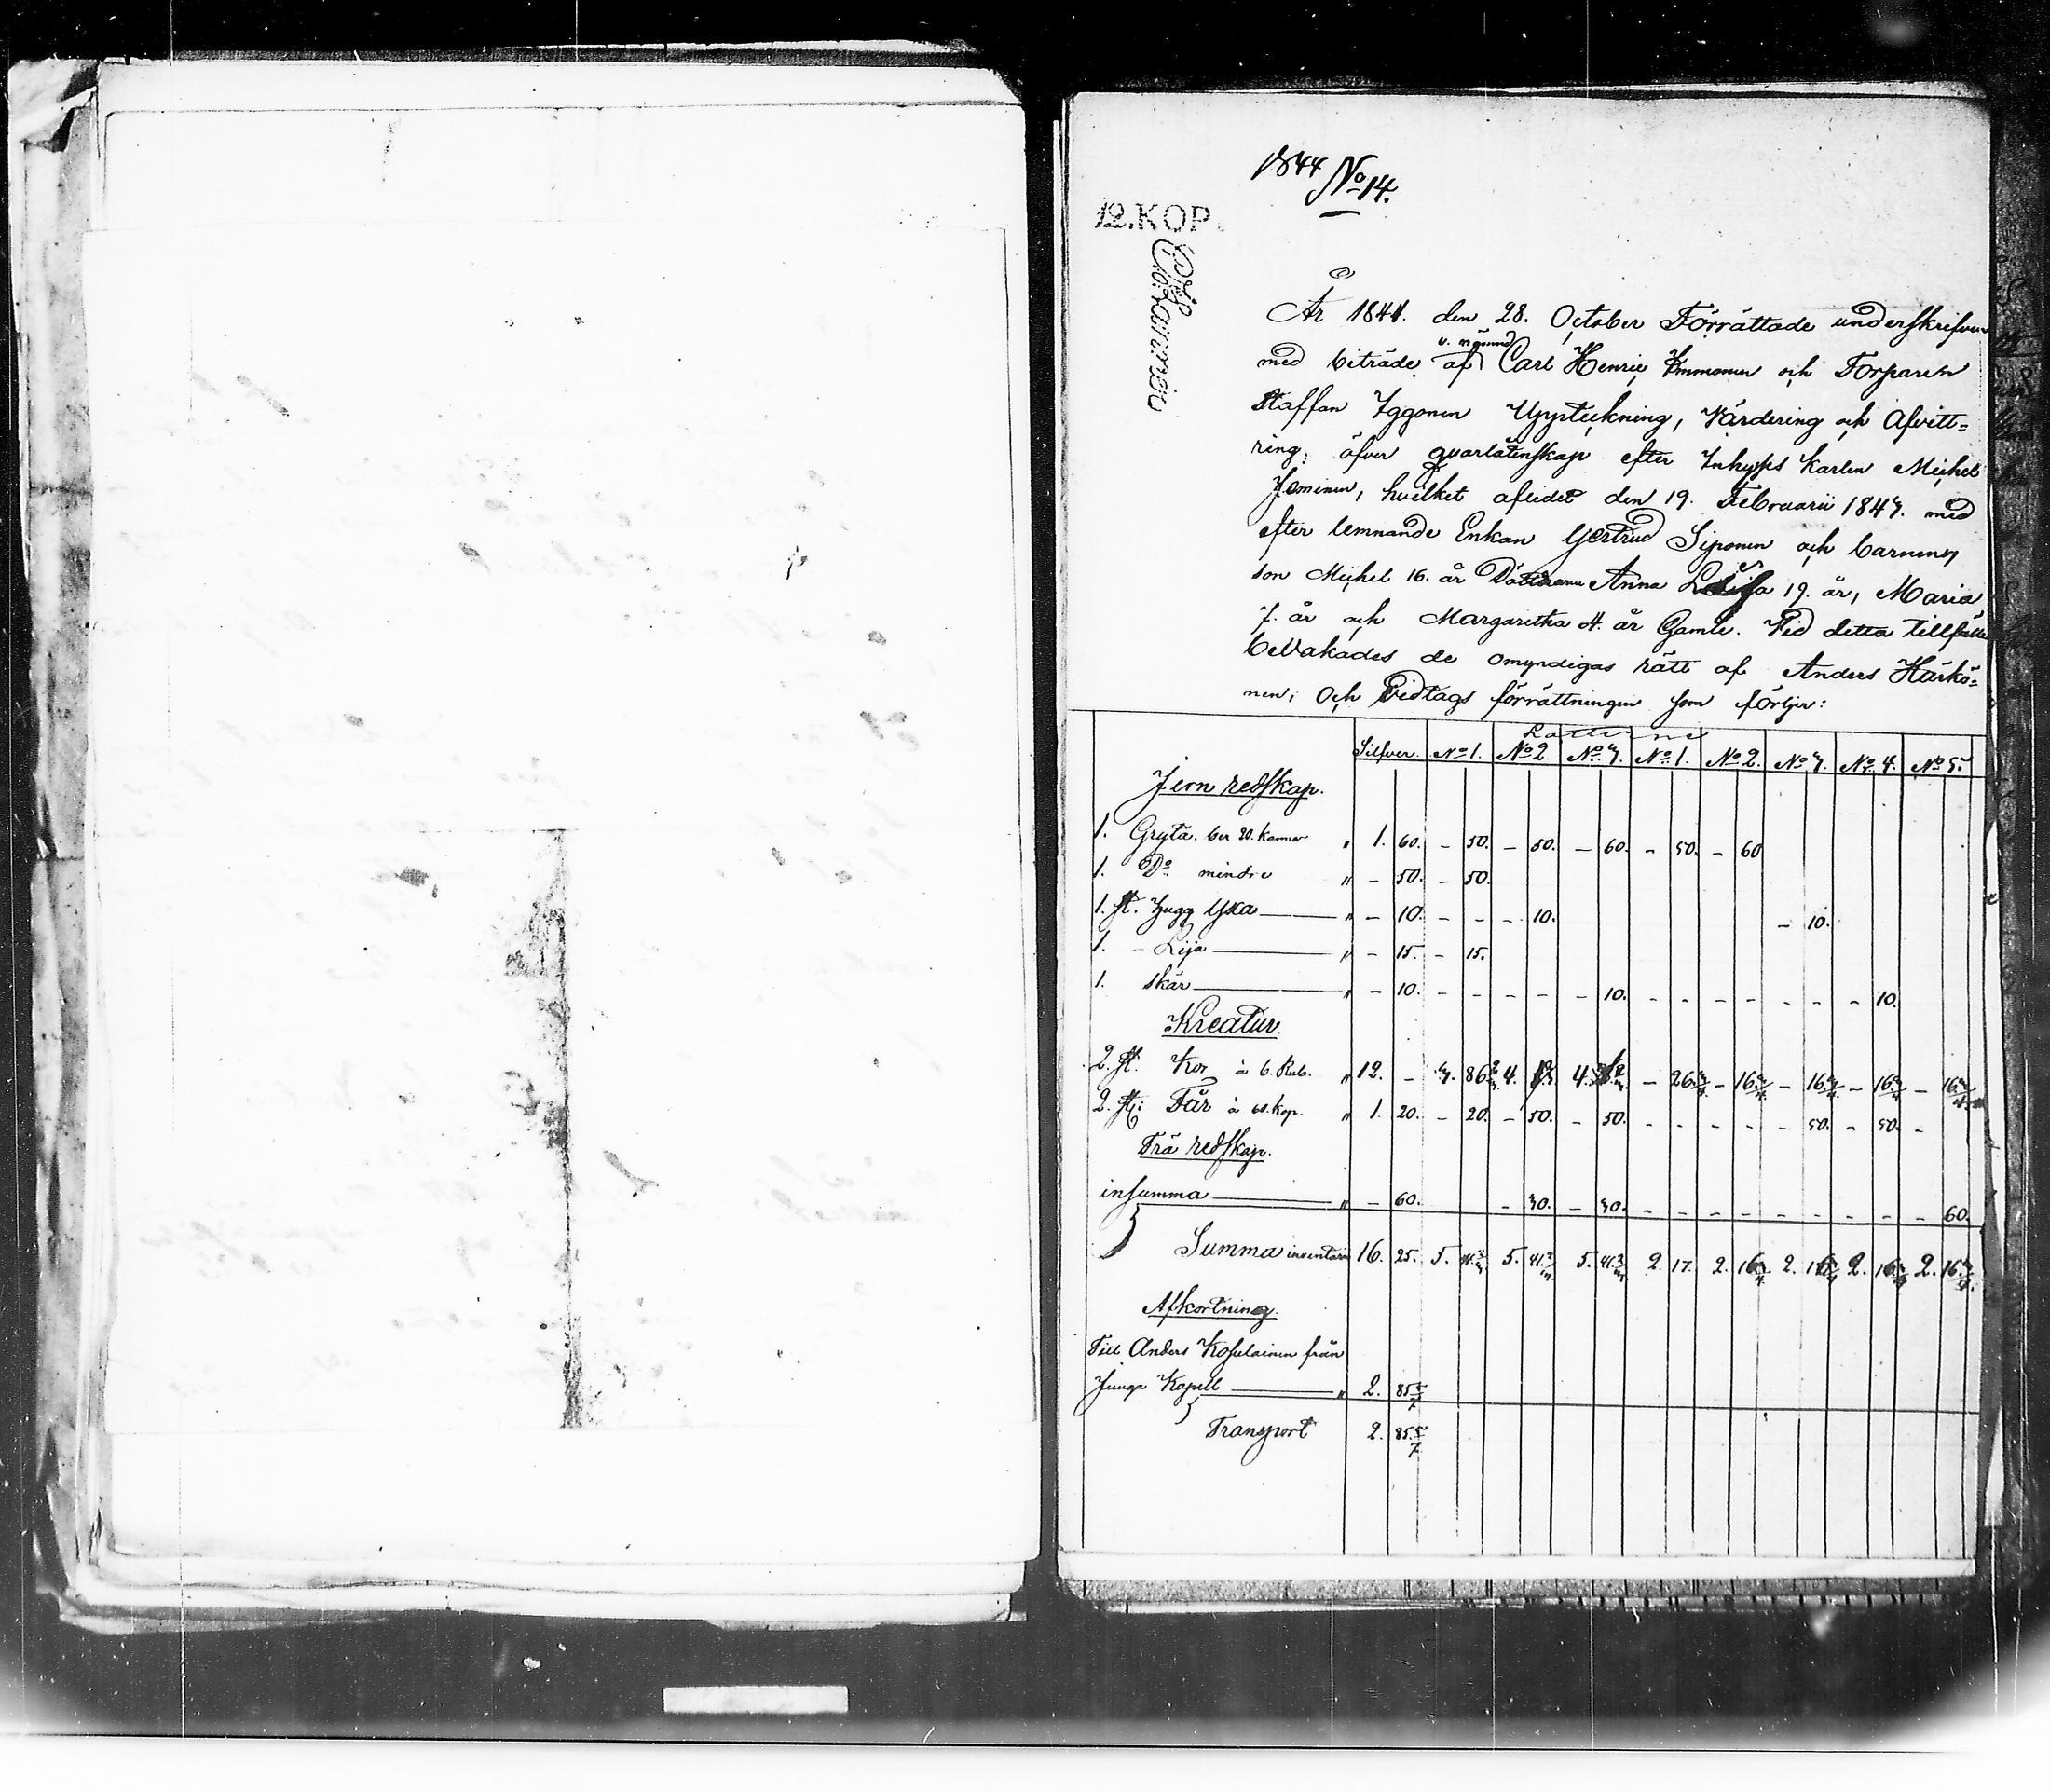 1844 No 14.
12.KOP.
År 1844. den 28. October Förrättade underskrifven
v. nämnd
med biträde af Carl Henric Immonen och Torparen
Staffan Iggonen Uppteckning, Värdering och Afvitt=
ring, öfver qvarlåtenskap efter Inhyses Karlen Michel
hvilket afledet den 19. Februarii 1843. med
efter lemnande Enkan Gertrud Siponen och barnen
son Michel 16. år Döttrarne Anna Lisa 19. år, Maria
7. år och Margaretha 4. år Gamle. Vid detta tillfälle
bevakades de omyndigas rätt af Anders Härkö=
nen, Och Vidtags förrättningen som följer:
Lotterne
Silfver. No 1. No 2. No 3. No 1. No 2. No 3. No 4. No 5.
Jern redskap.
1. Gryta. ber 20. kannor " 1. 60. - 50. - 50. - 60. - 50. - 60
1. Do mindre " - 50. - 50.
1. st. hugg Yxa " - 10. - - - 10. - 10.
1. - Lija " - 15. - 15.
1. skär " - 10. - - - - - 10. - - - - - - - 10.
Kreatur.
2. st. Kor à 6. Rub. " 12. - 3. 86 4. 4. - 26 - 16 - 16 - 16 - 16
2. st: Får à 60. kop. " 1. 20. - 20. - 50. - 50. - - - - - 50. - 50. -
Trä redskap.
insumma " - 60. - 30. - 30. - - - - - - - - - 60.
Summa inventarii 16. 25. 5. 41 5. 41 5. 41 2. 17. 2. 16 2. 16 2. 16 2. 16
Afkortning.
Till Anders Kosulainen från
Juuga Kapell " 2. 85 5/7
Transport 2. 85 5/7